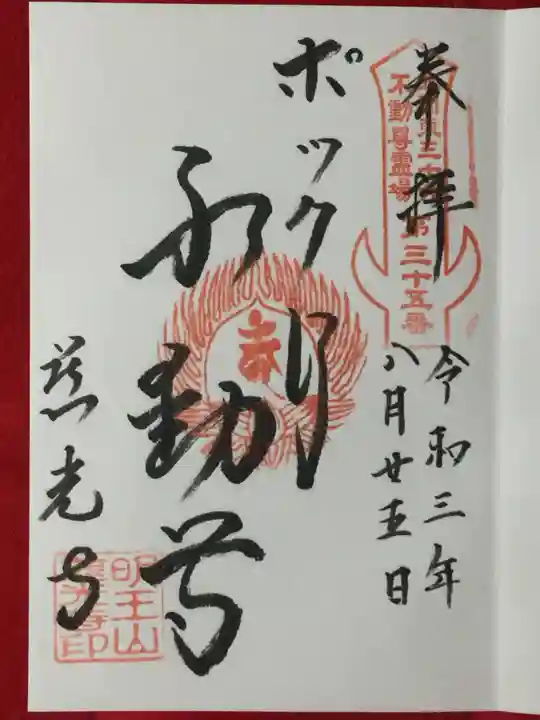 奉拝
不動尊霊場
第三十五番
令和三年
八月廿五日
ポックリ
不動尊
慈光寺
明王山
印